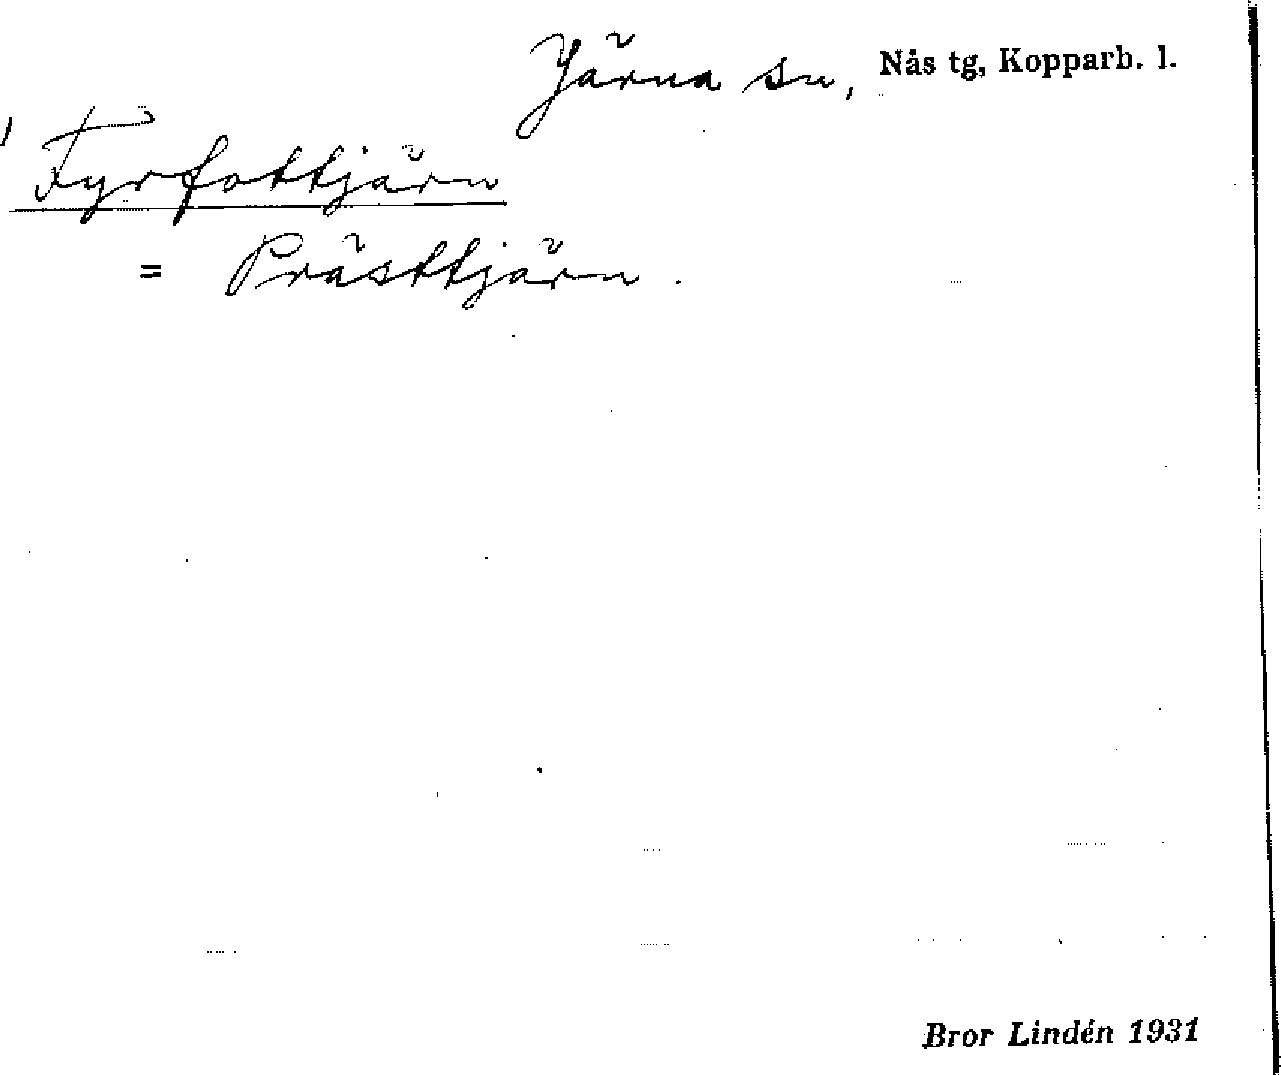 Järna sn, Nås tg, Kopparb. l.
Fyrfottjärn
= Prästtjärn.
Bror Lindén 1931